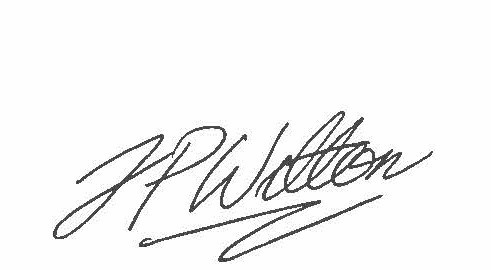 JP Wilton